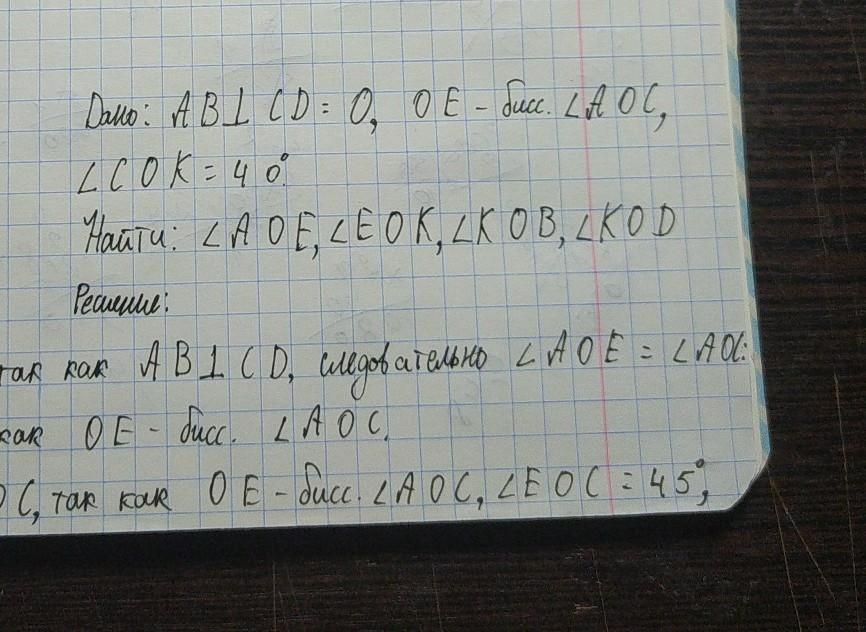 Дано: AB⊥CD=O, OE - бисс. ∠AOC,
∠COK=40°
Найти: ∠AOE,∠EOK,∠KOB,∠KOD
Решение:
так как AB⊥CD, следовательно ∠AOE=∠AOC:
как OE - бисс. ∠AOC.
OC, так как OE - бисс. ∠AOC, ∠EOC=45°,